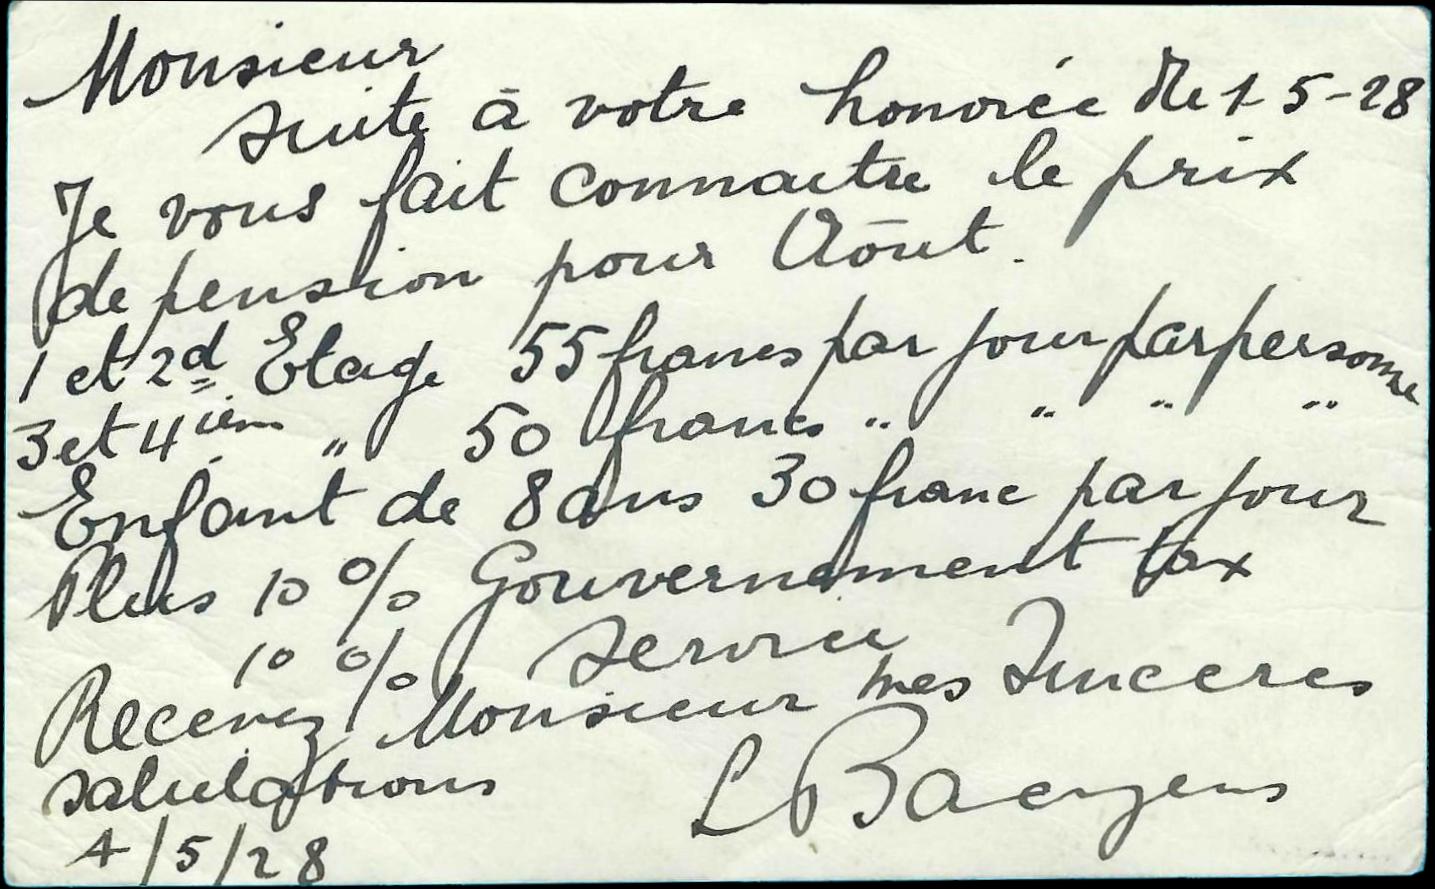 Monsieur
suite à votre honorée de 1-5-28
Je vous fait connaitre le prix
de pension pour Aôut.
1 et 2d Etage 55 francs par jour par personne
3 et 4ièm " 50 francs " " " "
Enfant de 8 ans 30 franc par jour
Plus 10 % Gouvernement tax
10 % service
Recevez Monsieur mes sinceres
salulations
4/5/28 L Baeyens